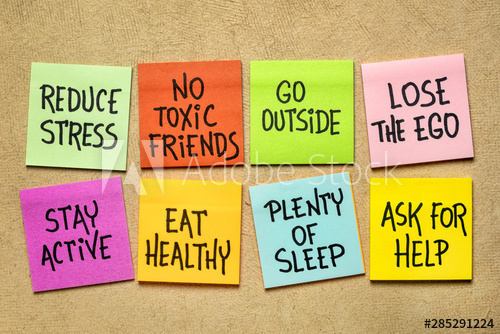 REDUCE
STRESS
NO
TOXIC
FRIENDS
GO
OUTSIDE
LOSE
THE EGO
STAY
ACTIVE
EAT
HEALTHY
PLENTY
OF
SLEEP
ASK FOR
HELP
Adobe Stock
#285291224